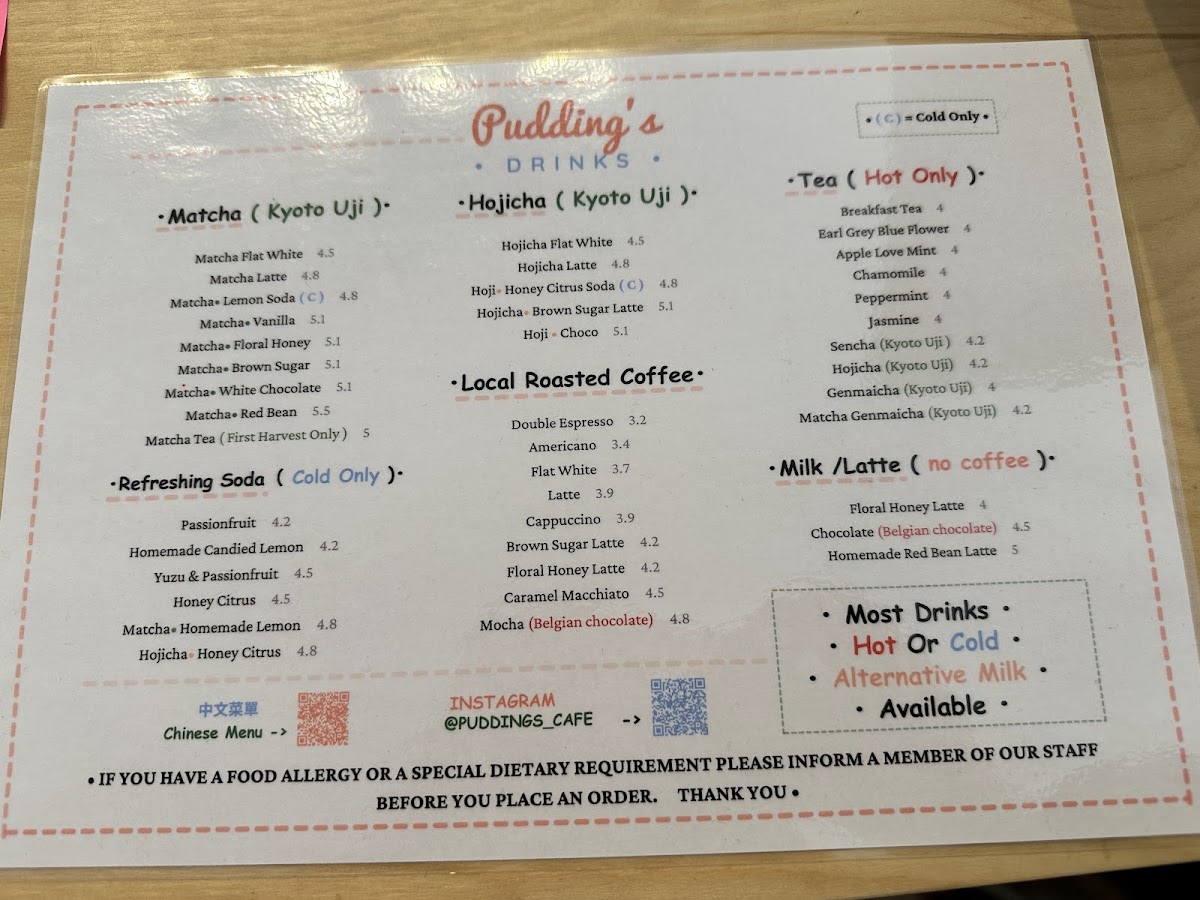 Pudding's
• DRINKS •
• (C) = Cold Only •
•Matcha ( Kyoto Uji )•
Matcha Flat White 4.5
Matcha Latte 4.8
Matcha• Lemon Soda (C) 4.8
Matcha• Vanilla 5.1
Matcha• Floral Honey 5.1
Matcha• Brown Sugar 5.1
Matcha• White Chocolate 5.1
Matcha• Red Bean 5.5
Matcha Tea (First Harvest Only) 5
•Refreshing Soda ( Cold Only )•
Passionfruit 4.2
Homemade Candied Lemon 4.2
Yuzu & Passionfruit 4.5
Honey Citrus 4.5
Matcha• Homemade Lemon 4.8
Hojicha• Honey Citrus 4.8
•Hojicha ( Kyoto Uji )•
Hojicha Flat White 4.5
Hojicha Latte 4.8
Hoji• Honey Citrus Soda (C) 4.8
Hojicha• Brown Sugar Latte 5.1
Hoji • Choco 5.1
•Local Roasted Coffee•
Double Espresso 3.2
Americano 3.4
Flat White 3.7
Latte 3.9
Cappuccino 3.9
Brown Sugar Latte 4.2
Floral Honey Latte 4.2
Caramel Macchiato 4.5
Mocha (Belgian chocolate) 4.8
•Tea ( Hot Only )•
Breakfast Tea 4
Earl Grey Blue Flower 4
Apple Love Mint 4
Chamomile 4
Peppermint 4
Jasmine 4
Sencha (Kyoto Uji) 4.2
Hojicha (Kyoto Uji) 4.2
Genmaicha (Kyoto Uji) 4
Matcha Genmaicha (Kyoto Uji) 4.2
•Milk /Latte ( no coffee )•
Floral Honey Latte 4
Chocolate (Belgian chocolate) 4.5
Homemade Red Bean Latte 5
• Most Drinks •
• Hot Or Cold •
• Alternative Milk •
• Available •
中文菜單
Chinese Menu ->
INSTAGRAM
@PUDDINGS_CAFE ->
• IF YOU HAVE A FOOD ALLERGY OR A SPECIAL DIETARY REQUIREMENT PLEASE INFORM A MEMBER OF OUR STAFF
BEFORE YOU PLACE AN ORDER. THANK YOU •